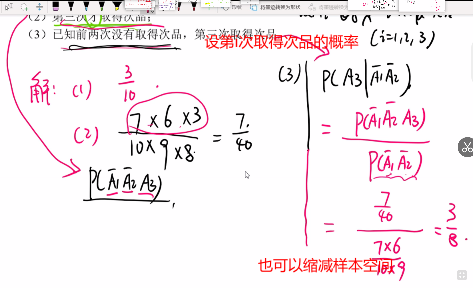 (2) 第三次才取得次品;
(3) 已知前两次没有取得次品，第三次取得次品
设第i次取得次品的概率
(i=1,2,3)
解: (1) 3/10.
(2) 7×6×3 / 10×9×8 = 7/40
P(Ā₁Ā₂A₃)
(3) P(A₃|Ā₁Ā₂)
= P(Ā₁Ā₂A₃) / P(Ā₁Ā₂)
= (7/40) / (7×6 / 10×9) = 3/8.
也可以缩减样本空间